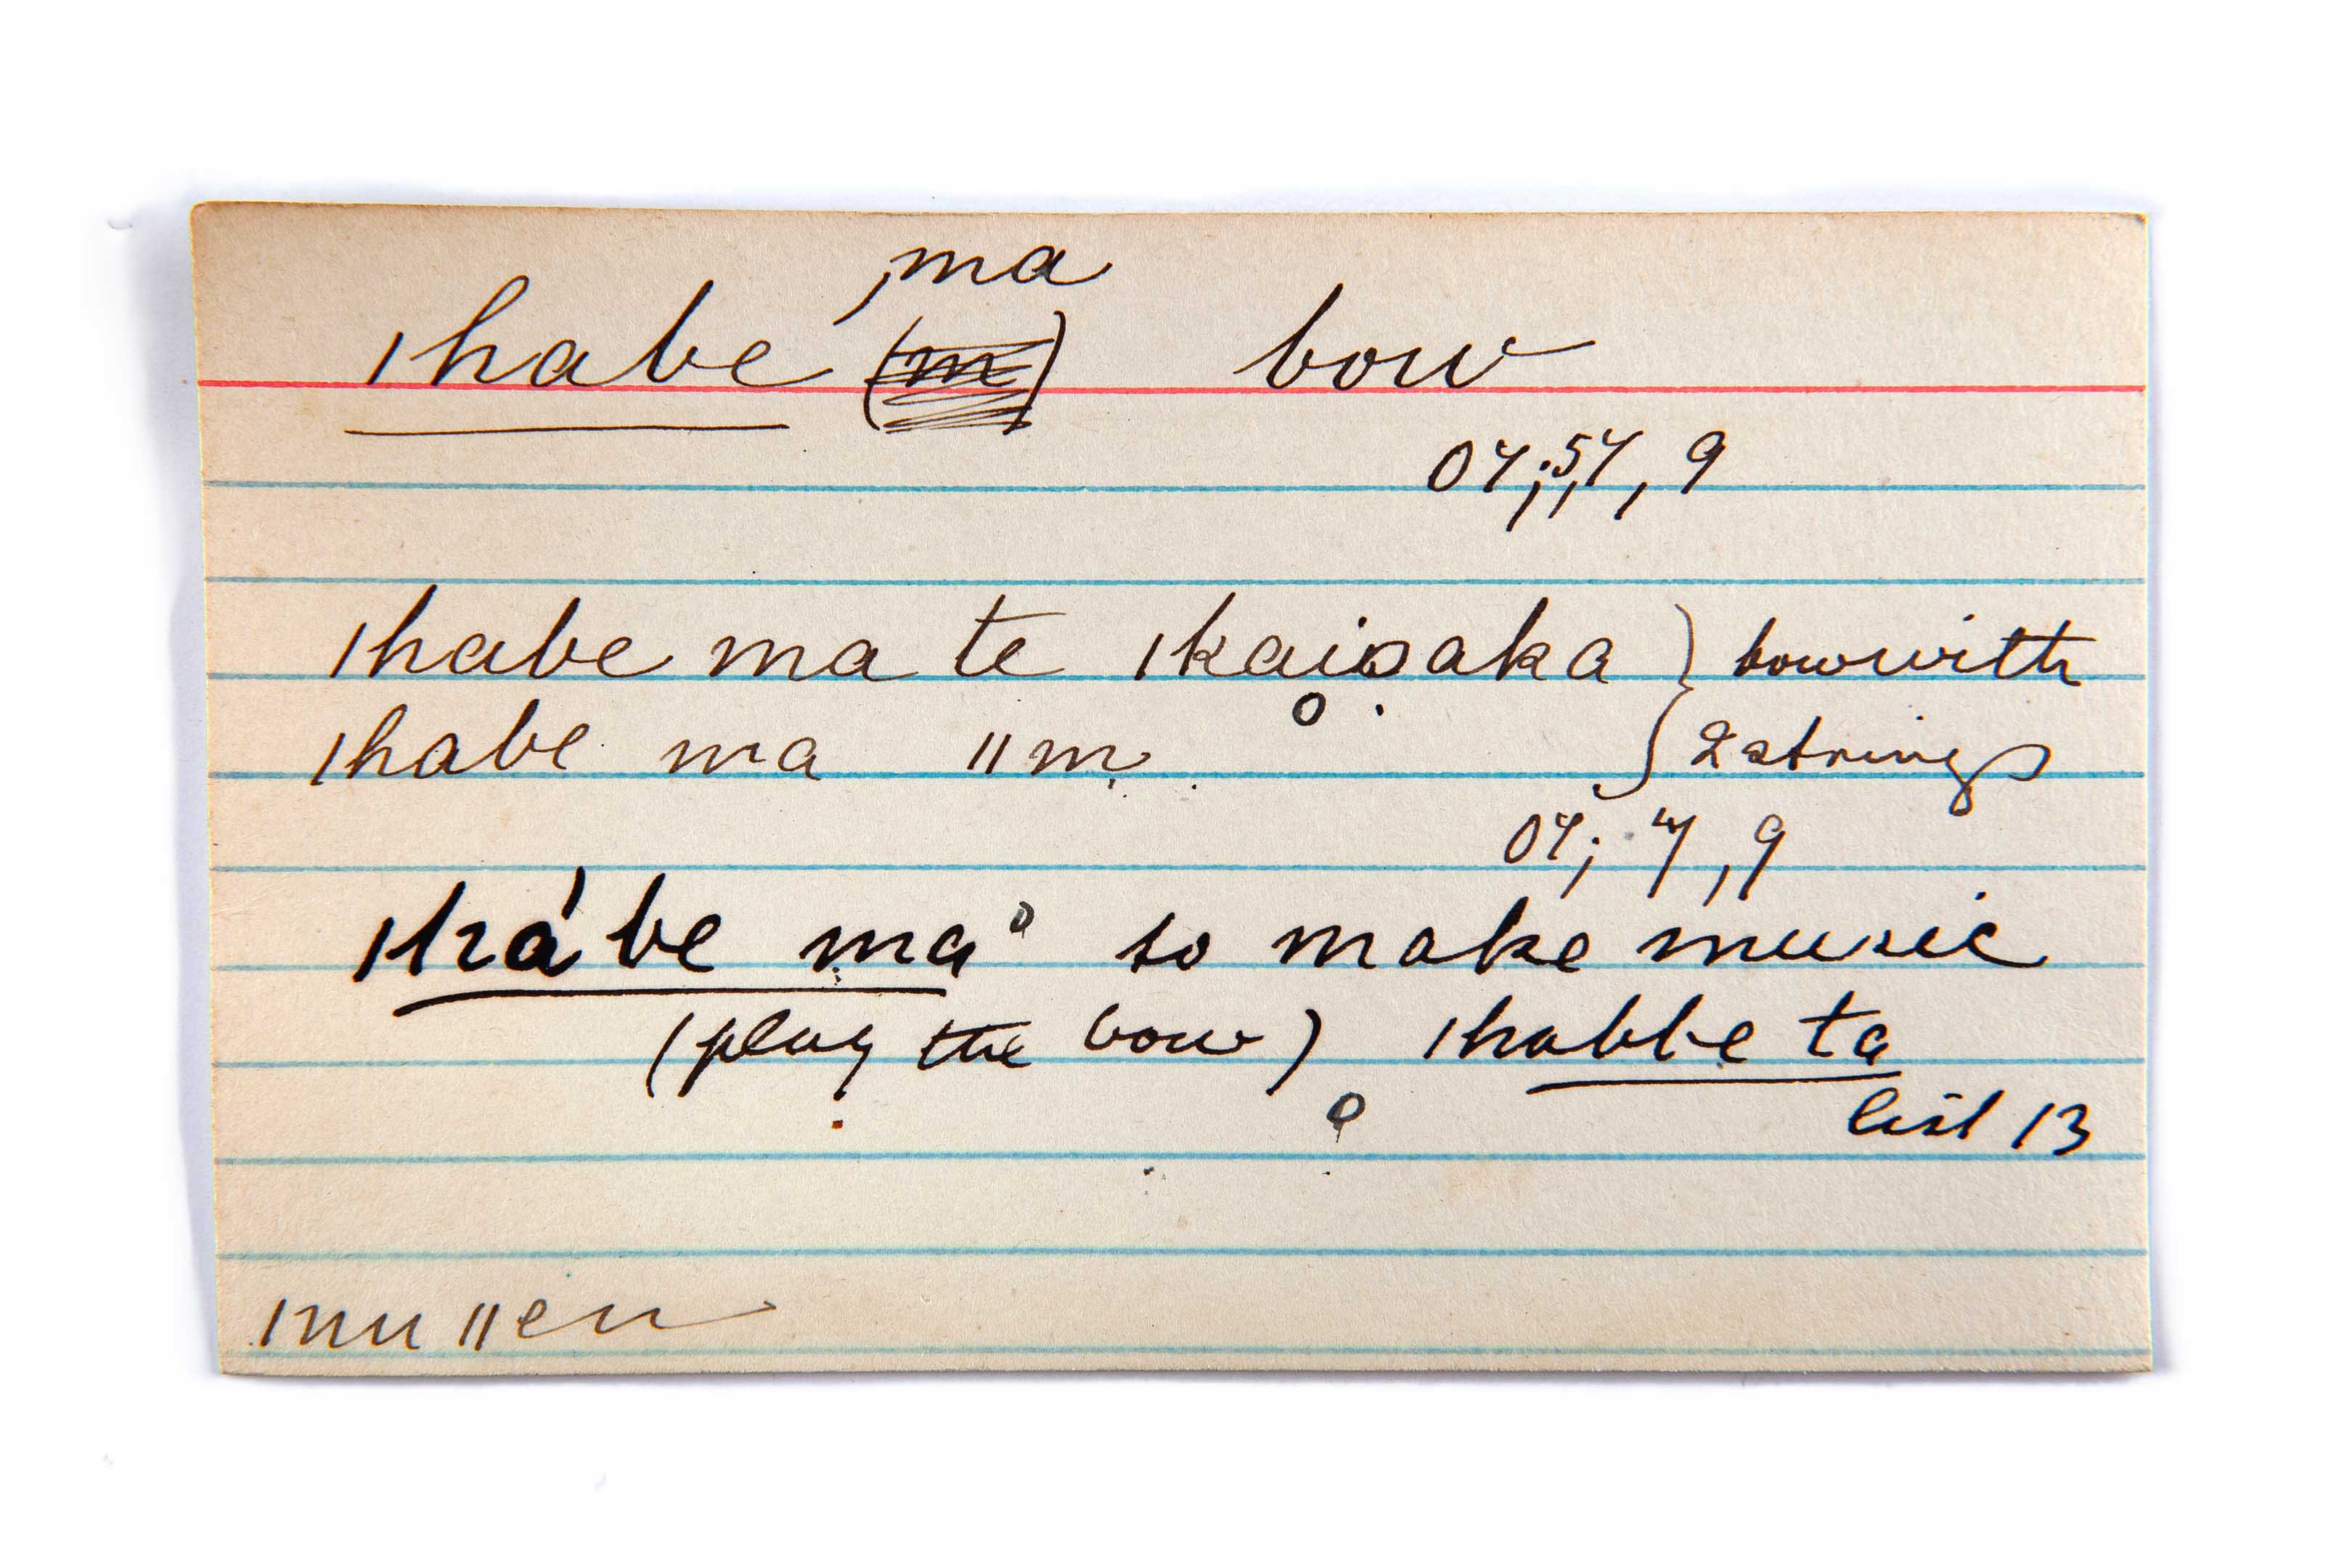 ma
ıhabe (m) bow
07; 57, 9
ıhabe ma te ıkaisaka } bow with
ıhabe ma ıım } 2 strings
07; 9
ıhábe ma° to make music
(play the bow) ıhabbe ta
list 13